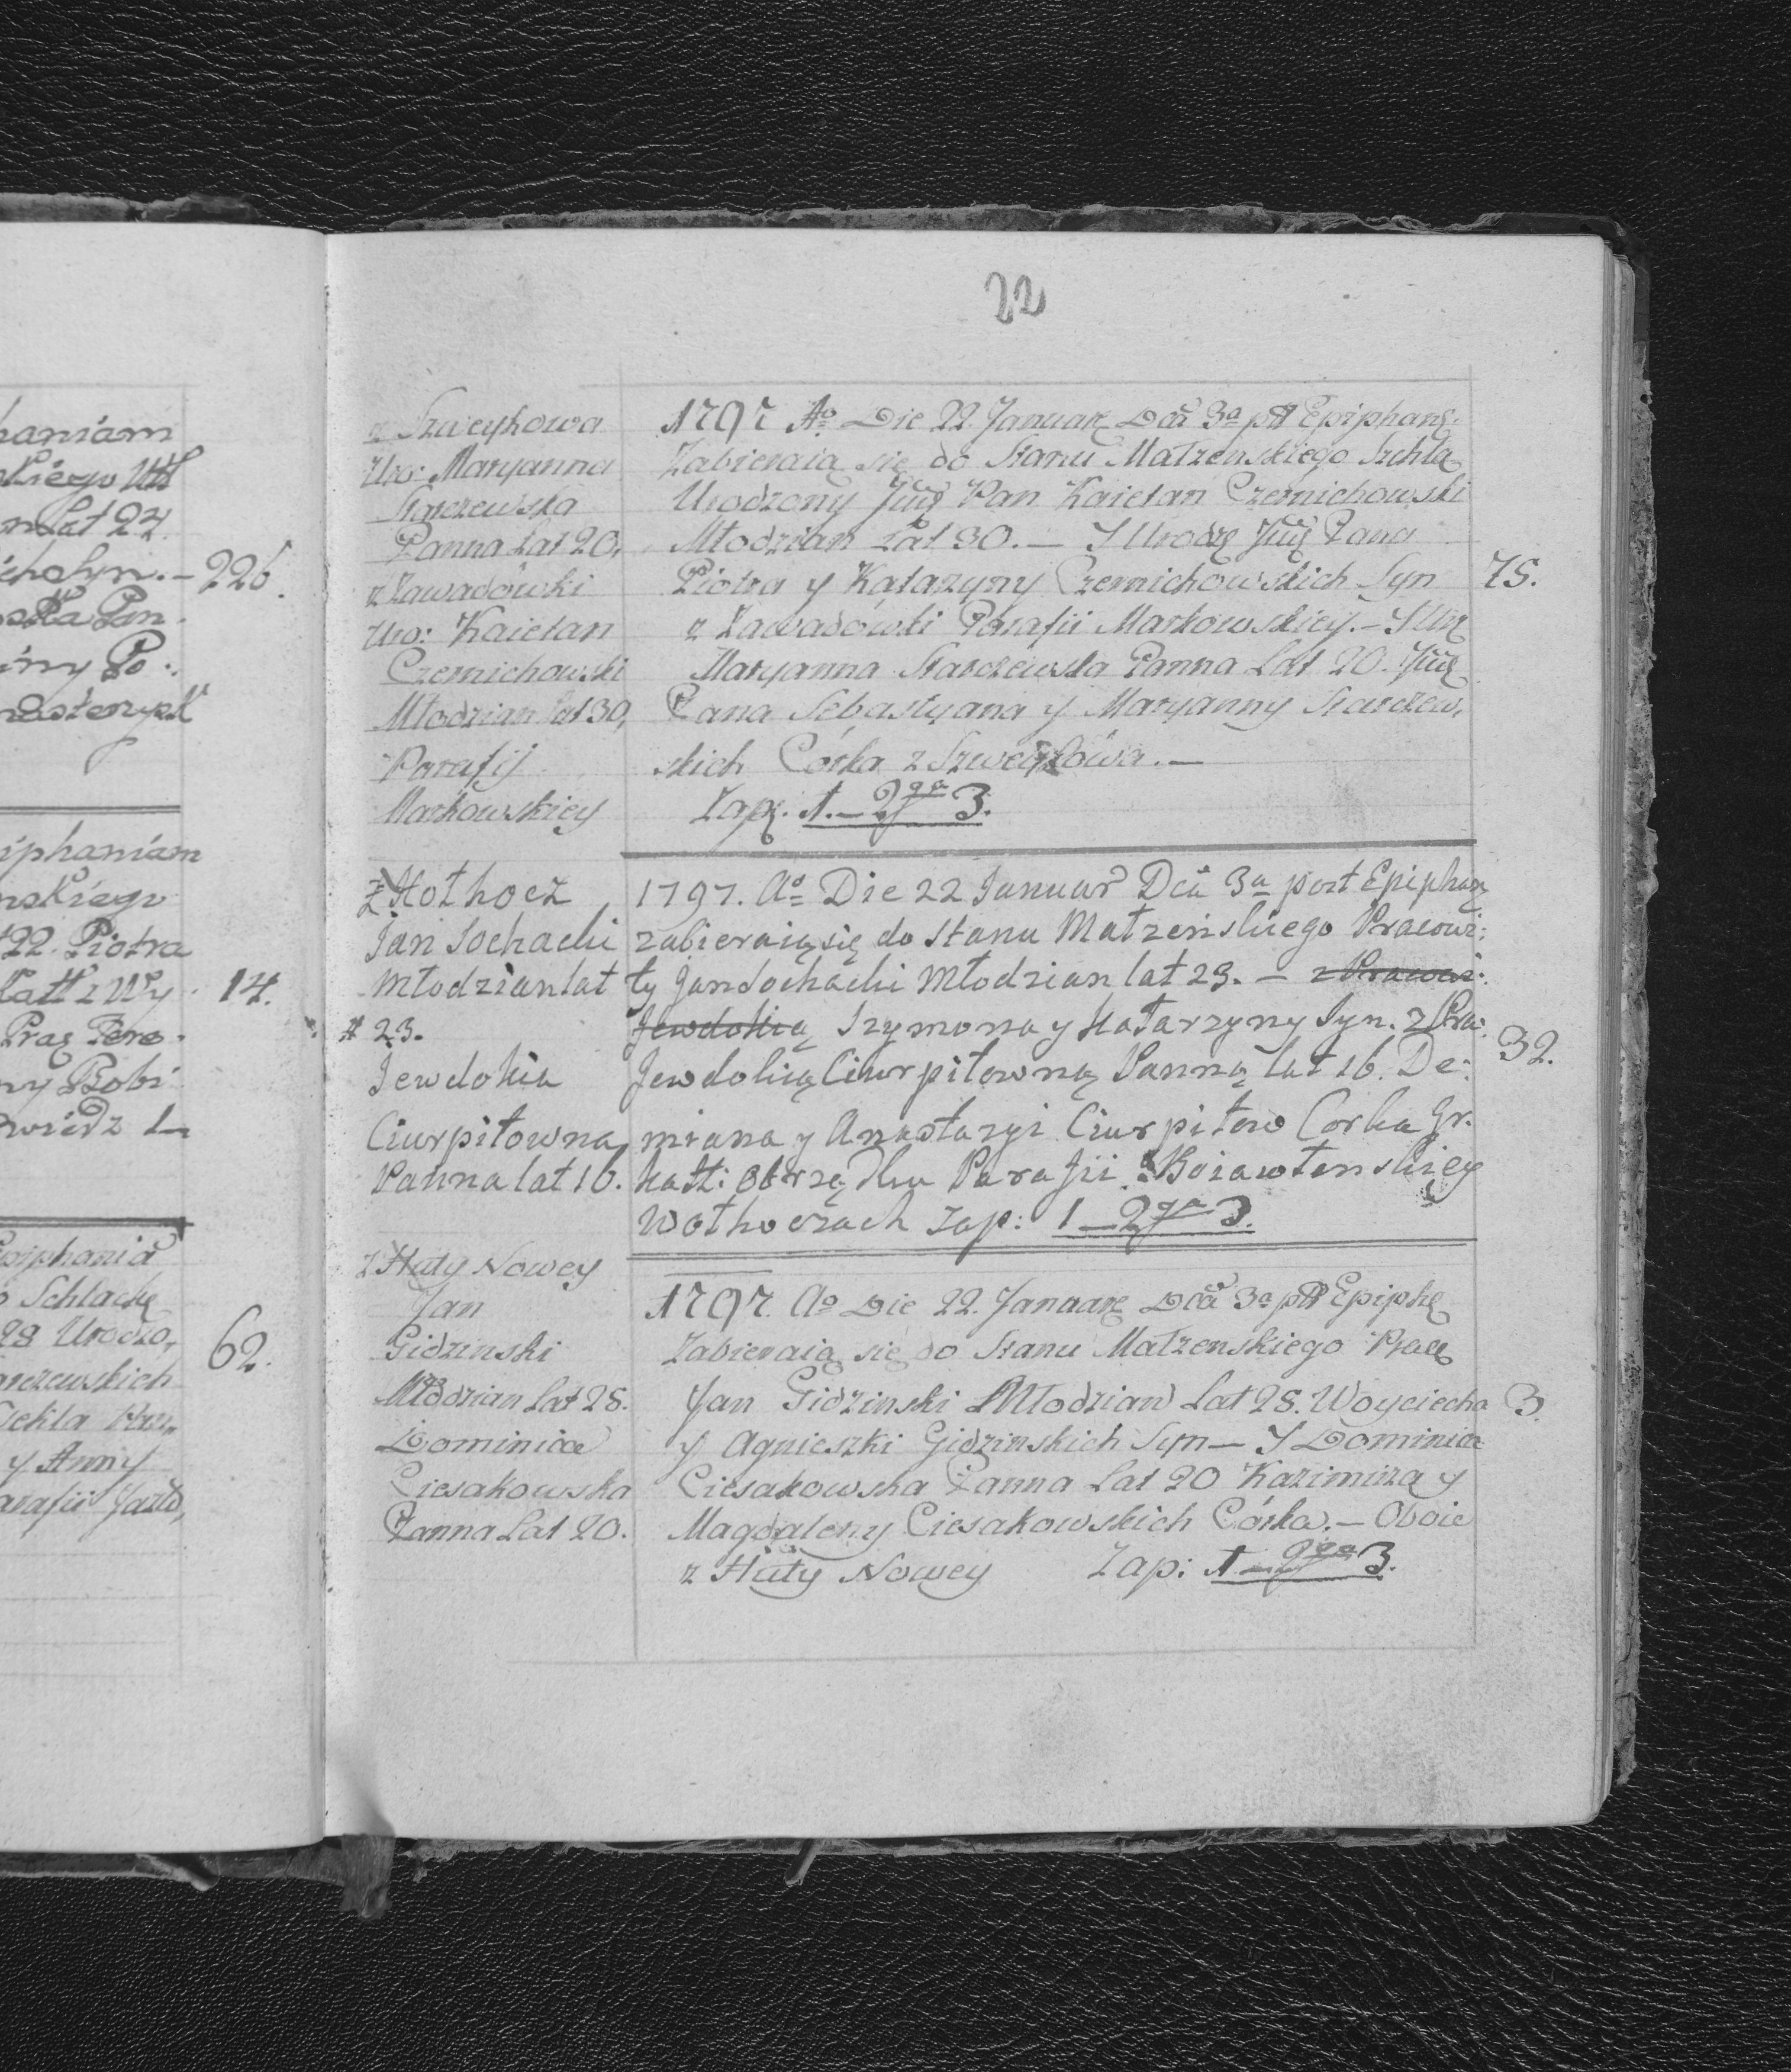 haniam
skiego Utt
n Lat 24.
ich Syn. – 226.
ska Pan.
iny Po:
iphaniam
nskiego
22. Piotra
Katt z Wy 14.
Prac Tere.
ny Bobi
Epiphania
Schlachę
28 Urodzo,
rczewskich 62.
Tekla Pan,
y Anny
arafii Jazło,
22
z Szweykowa
Uro: Maryanna
Starczewska
Panna Lat 20,
z Zawadówki
Uro: Kaietan
Czernichowski
Młodzian lat 30,
Parafij
Markowskiey
1797 Aº Die 22 Januarę Dcâ 3ª ptt Epiphanę.
Zabieraią się do Stanu Małzenskiego Szchlą
Urodzony Jmę Pan Kaietan Czernichowski
Młodzian Lat 30. – Y Urodzę Jmę Pana
Piotra y Katarzyny Czernichowskich Syn 75.
z Zawadówki Parafii Markowskiey. – Y Urę
Maryanna Starczewska Panna Lat 20. Jmę
Pana Sebastyana y Maryanny Starczew,
skich Córka z Szweykowa. –
Zapę. 1. – 2ga 3.
z Hołhocz
Jan Sochacki
Młodzian lat
# 23.
Jewdokia
Ciurpitowna
Panna lat 16.
1797. Aº Die 22 Januar Dcâ 3a post Epiphanę
zabieraią się do stanu Małzeńskiego Pracowi:
ty Jan Sochacki Młodzian lat 23. – z Pracowi:
Jewdokią Szymona y Katarzyny Syn. z Pra: 32.
Jewdokią Ciurpitowną Panną lat 16. De:
miana y Anastazyi Ciurpitow Corka Gr.
katt: obrządku Parafii Boiawłenskiey
w Hołhoczach zap: 1 – 2ga 3.
z Huty Nowey
Jan
Gidzinski
Młodzian Lat 28.
Dominica
Ciesakowska
Panna Lat 20.
1797. Aº Die 22. Januarę Dcâ 3a ptt Epiphę
Zabieraią się do Stanu Małzenskiego Pracę
Jan Gidzinski Młodzian Lat 28. Woyciecha 3.
y Agnieszki Gidzinskich Syn – Y Dominica
Ciesakowska Panna Lat 20 Kazimirza y
Magdaleny Ciesakowskich Córka. – Oboie
z Huty Nowey Zap: 1 – 2ga 3.